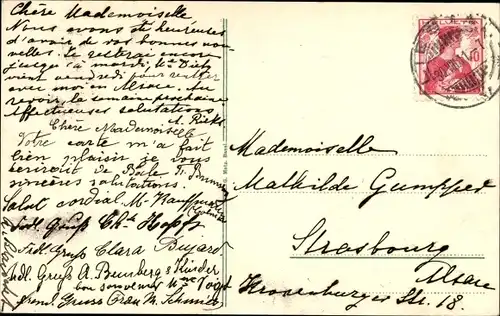 Chère Mademoiselle
Nous avons été heureuses
d'avoir de vos bonnes nou-
velles. Je resterai encore
jusqu'à mardi, Mme
vient vendredi pour rentrer
avec moi en Alsace. Au
revoir, la semaine prochaine
Affectueuses salutations
A.
Chère Mademoiselle
Votre carte m'a fait
bien plaisir je vous
écrirai de Bâle
sincères salutations.
Salut cordial M. Kauffmann
Frdl. Gruß Hopff
Frdl. Gruss Clara
Frdl. Gruß A. & Kinder
bon souvenir Mme Vogt
Freundl. Gruss Frau N. Schmid
Mademoiselle
Mathilde Gumpper
Strasbourg
Alsace
Kronenburger Str. 18.
10